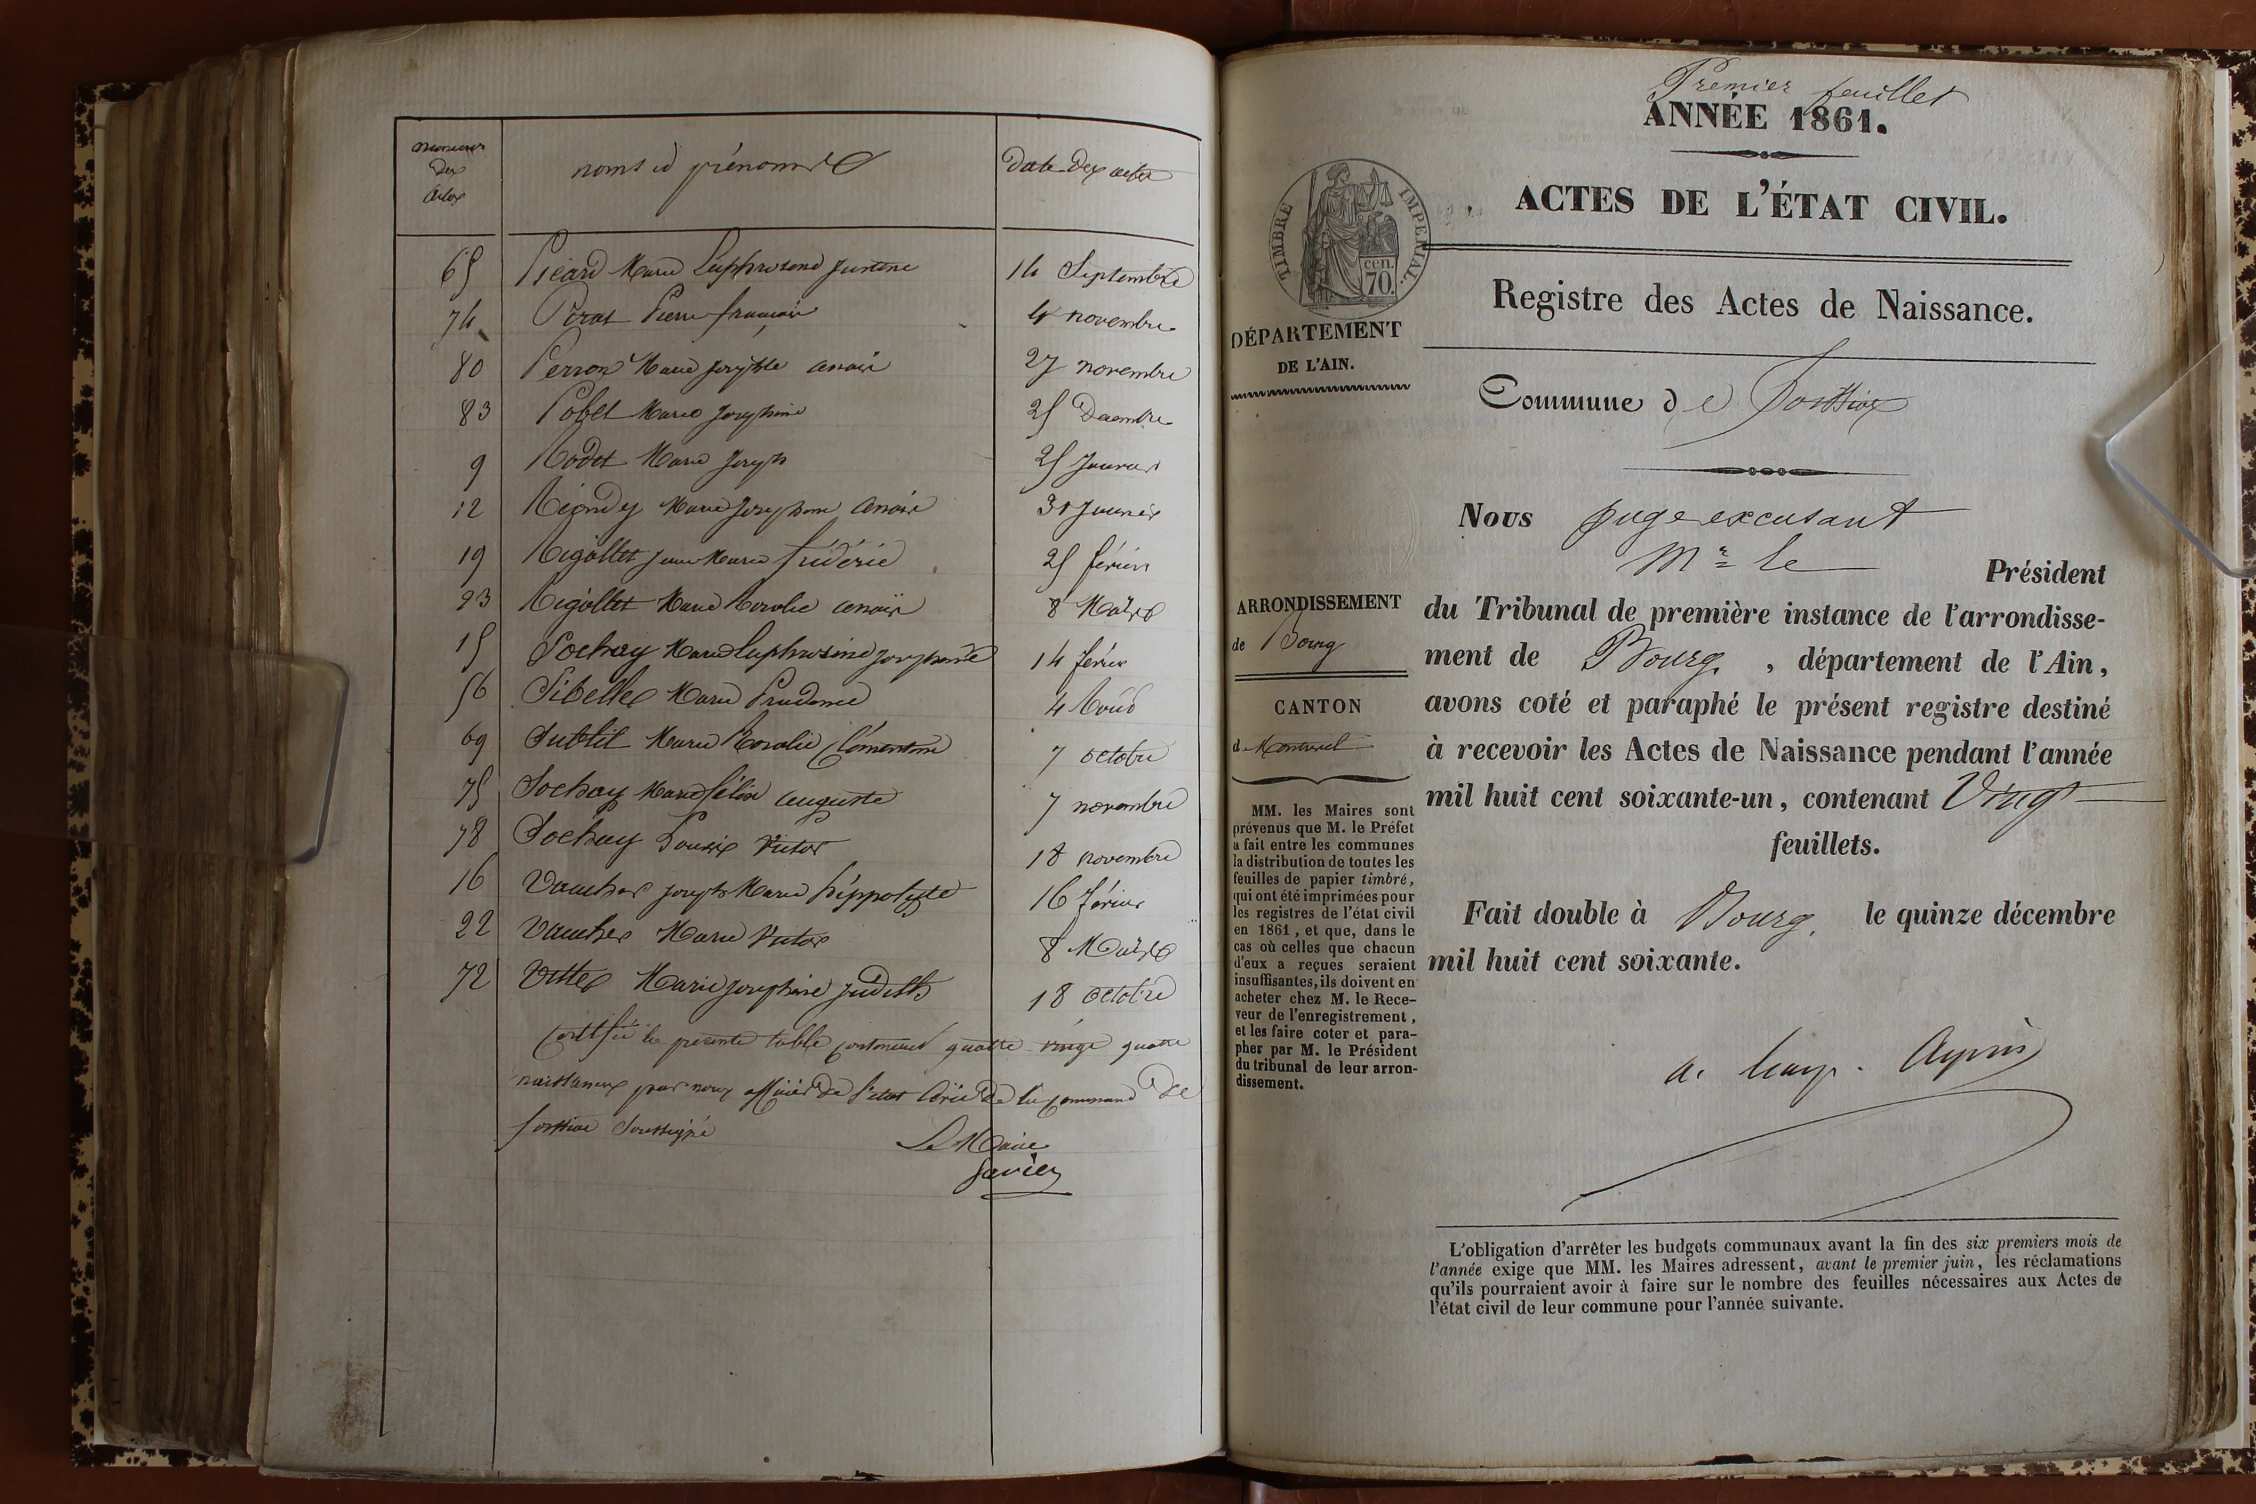 numeros
des
actes
noms et prénoms
Date des actes
65 Picard Marie Euphrosine Justine 14 Septembre
74 Perat Pierre françois 4 novembre
80 Perron Marie Josephte anaïs 27 novembre
83 Pobel Marie Josephine 25 Decembre
9 Rodet Marie Joseph 25 Janvier
12 Riondy Marie Josephine anaïs 31 Janvier
19 Rigollet Jean Marie frédéric 25 février
23 Rigollet Marie Rosalie anaïs 8 Mars
15 Sochay Marie Euphrosine Josephine 14 février
56 Sibelle Marie Prudence 4 Août
69 Subtil Marie Rosalie Clémentine 7 octobre
75 Sochay Marie félix auguste 7 novembre
78 Sochay Louis Victor 18 novembre
16 Vaucher Joseph Marie hippolyte 16 février
22 Vaucher Marie Victor 8 Mars
72 Vitte Marie Josephine Judith 18 octobre
Certifié la présente table contenant quatre vingt quatre
naissances par nous officier de l'etat Civil de la commune de
Soussigné
Le Maire
Premier feuillet
ANNÉE 1861.
ACTES DE L'ÉTAT CIVIL.
TIMBRE IMPERIAL.
cen.
70.
Registre des Actes de Naissance.
DÉPARTEMENT
DE L'AIN.
Commune de
Nous Juge excusant
Mr le Président
du Tribunal de première instance de l'arrondisse-
ment de Bourg, département de l'Ain,
avons coté et paraphé le présent registre destiné
à recevoir les Actes de Naissance pendant l'année
mil huit cent soixante-un, contenant Vingt
feuillets.
Fait double à Bourg, le quinze décembre
mil huit cent soixante.
ARRONDISSEMENT
de Bourg
CANTON
de Montrevel
MM. les Maires sont
prévenus que M. le Préfet
a fait entre les communes
la distribution de toutes les
feuilles de papier timbré,
qui ont été imprimées pour
les registres de l'état civil
en 1861, et que, dans le
cas où celles que chacun
d'eux a reçues seraient
insuffisantes, ils doivent en
acheter chez M. le Rece-
veur de l'enregistrement,
et les faire coter et para-
pher par M. le Président
du tribunal de leur arron-
dissement.
L'obligation d'arrêter les budgets communaux avant la fin des six premiers mois de
l'année exige que MM. les Maires adressent, avant le premier juin, les réclamations
qu'ils pourraient avoir à faire sur le nombre des feuilles nécessaires aux Actes de
l'état civil de leur commune pour l'année suivante.